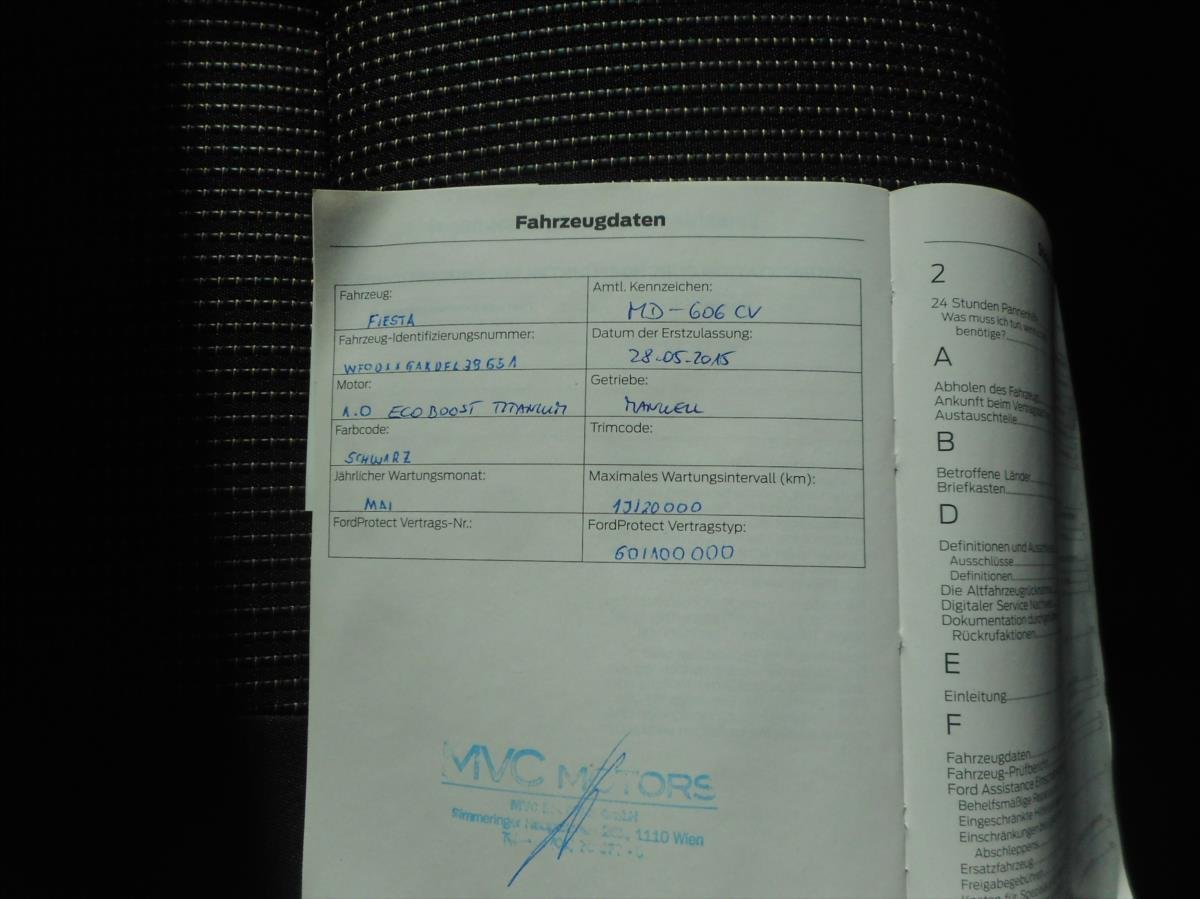 Fahrzeugdaten
Fahrzeug:
FIESTA
Amtl. Kennzeichen:
MD-606 CV
Fahrzeug-Identifizierungsnummer:
Datum der Erstzulassung:
28-05-2015
Motor:
1.0 ECOBOOST TITANIUM
Getriebe:
MANUELL
Farbcode:
SCHWARZ
Trimcode:
Jährlicher Wartungsmonat:
MAI
Maximales Wartungsintervall (km):
1J/20000
FordProtect Vertrags-Nr.:
FordProtect Vertragstyp:
60/100 000
MVC MOTORS
MVC GmbH
Simmeringer 1110 Wien
2
24 Stunden
Was muss ich tun,
benötige?
A
Abholen des
Ankunft beim
Austauschteile
B
Betroffene Länder
Briefkasten
D
Definitionen und
Ausschlüsse
Definitionen
Die
Digitaler Service
Dokumentation
Rückrufaktionen
E
Einleitung
F
Fahrzeugdaten
Fahrzeug-Prüfbericht
Ford Assistance
Behelfsmäßige
Eingeschränkte
Einschränkungen
Abschleppens
Ersatzfahrzeug
Freigabegebühren